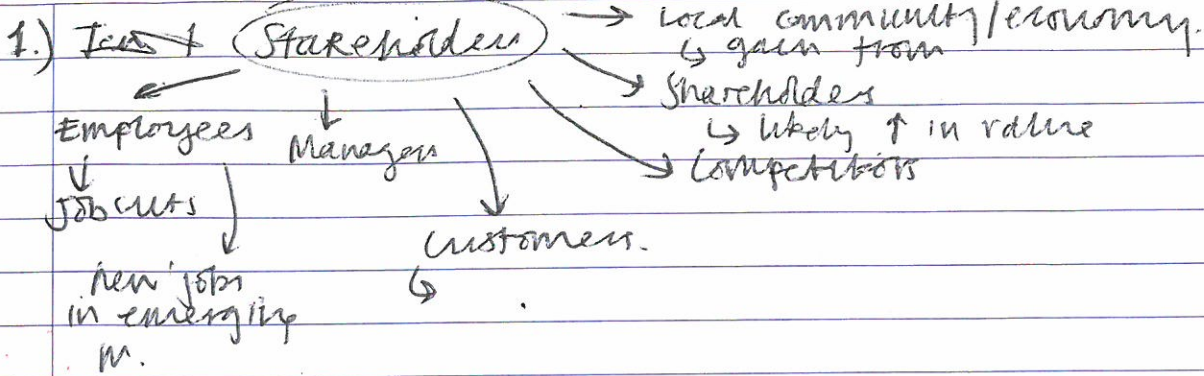 1.) Stakeholders → Local community/economy.
↳ gain from
→ Shareholders
↳ likely ↑ in value
→ Competitors
Employees
↓
Job cuts
new jobs
in emerging
m.
Managers
Customers.
↳